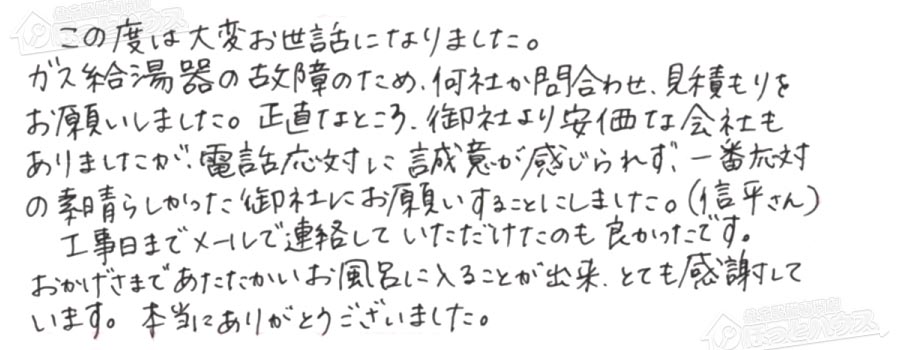 この度は大変お世話になりました。
ガス給湯器の故障のため、何社か問合わせ、見積もりを
お願いしました。正直なところ、御社より安価な会社も
ありましたが、電話応対に誠意が感じられず、一番応対
の素晴らしかった御社にお願いすることにしました。(信平さん)
工事日までメールで連絡していただけたのも良かったです。
おかげさまであたたかいお風呂に入ることが出来、とても感謝して
います。本当にありがとうございました。
ほっとハウス